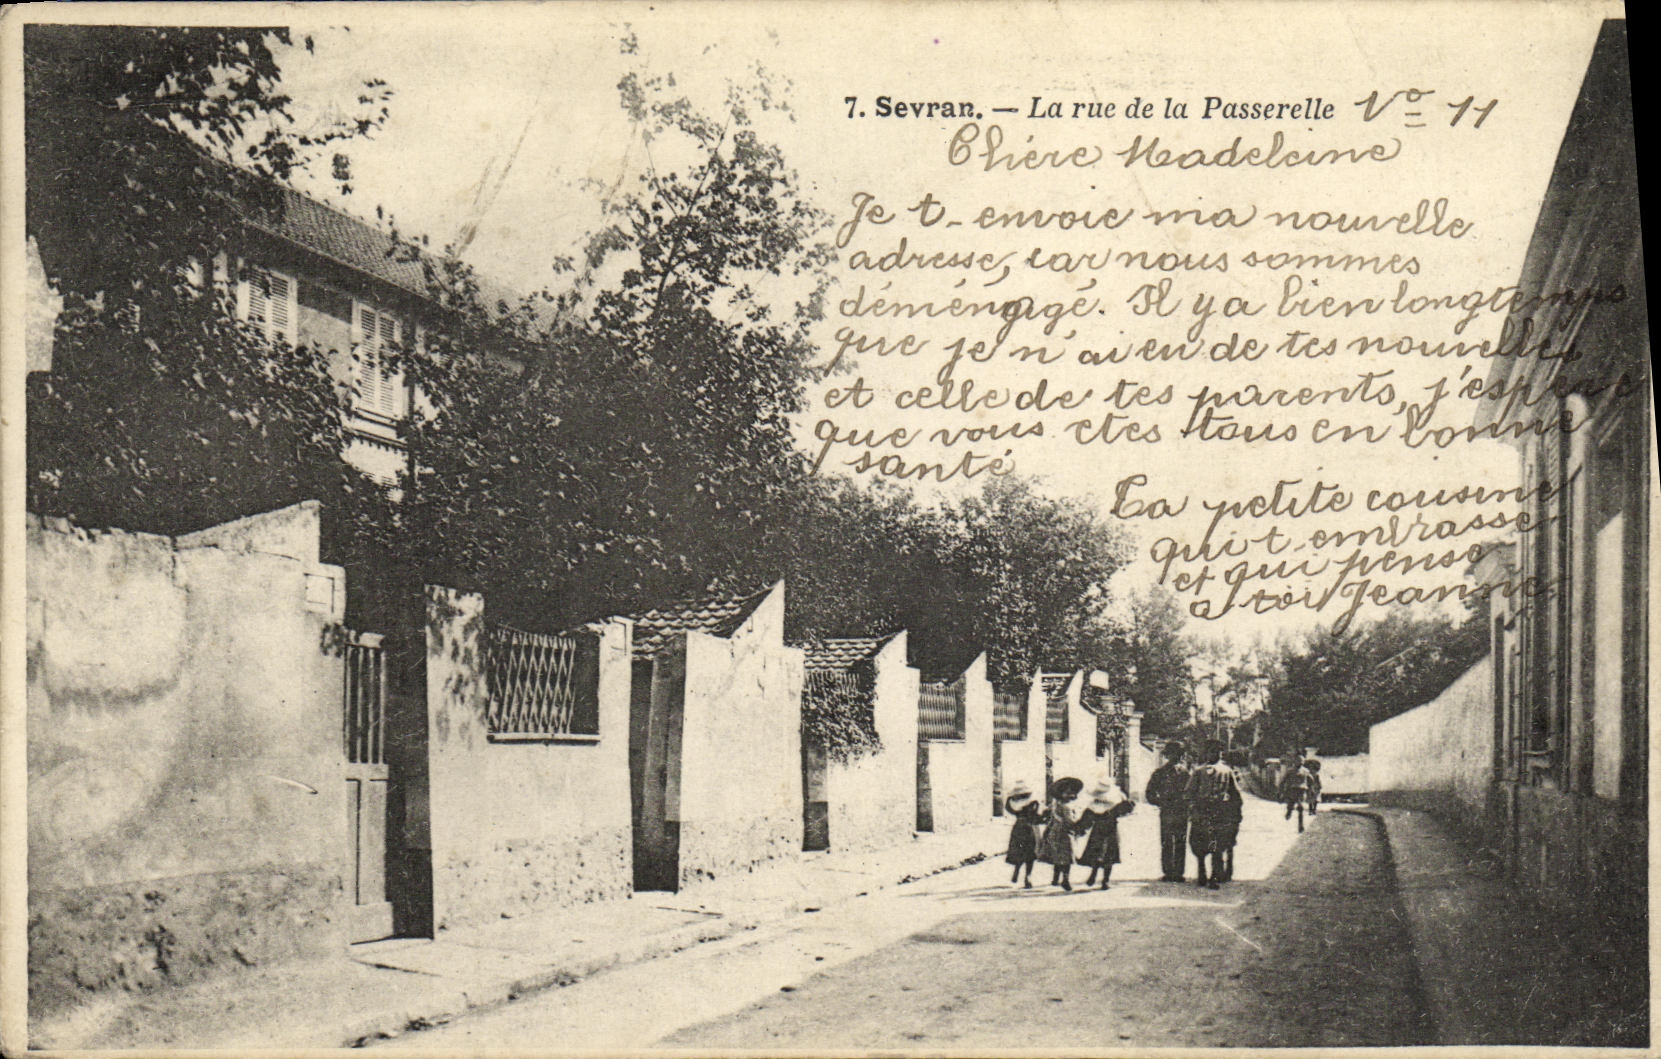 7. Sevran. — La rue de la Passerelle Nº 11
Chère Madeleine
Je t-envoie ma nouvelle
adresse, car nous sommes
déménagé. Il y a bien longtemps
que je n'ai eu de tes nouvelles
et celle de tes parents, j'espère
que vous etes tous en bonne
santé
Ta petite cousine
qui t-embrasse
et qui pense
a toi Jeanne.